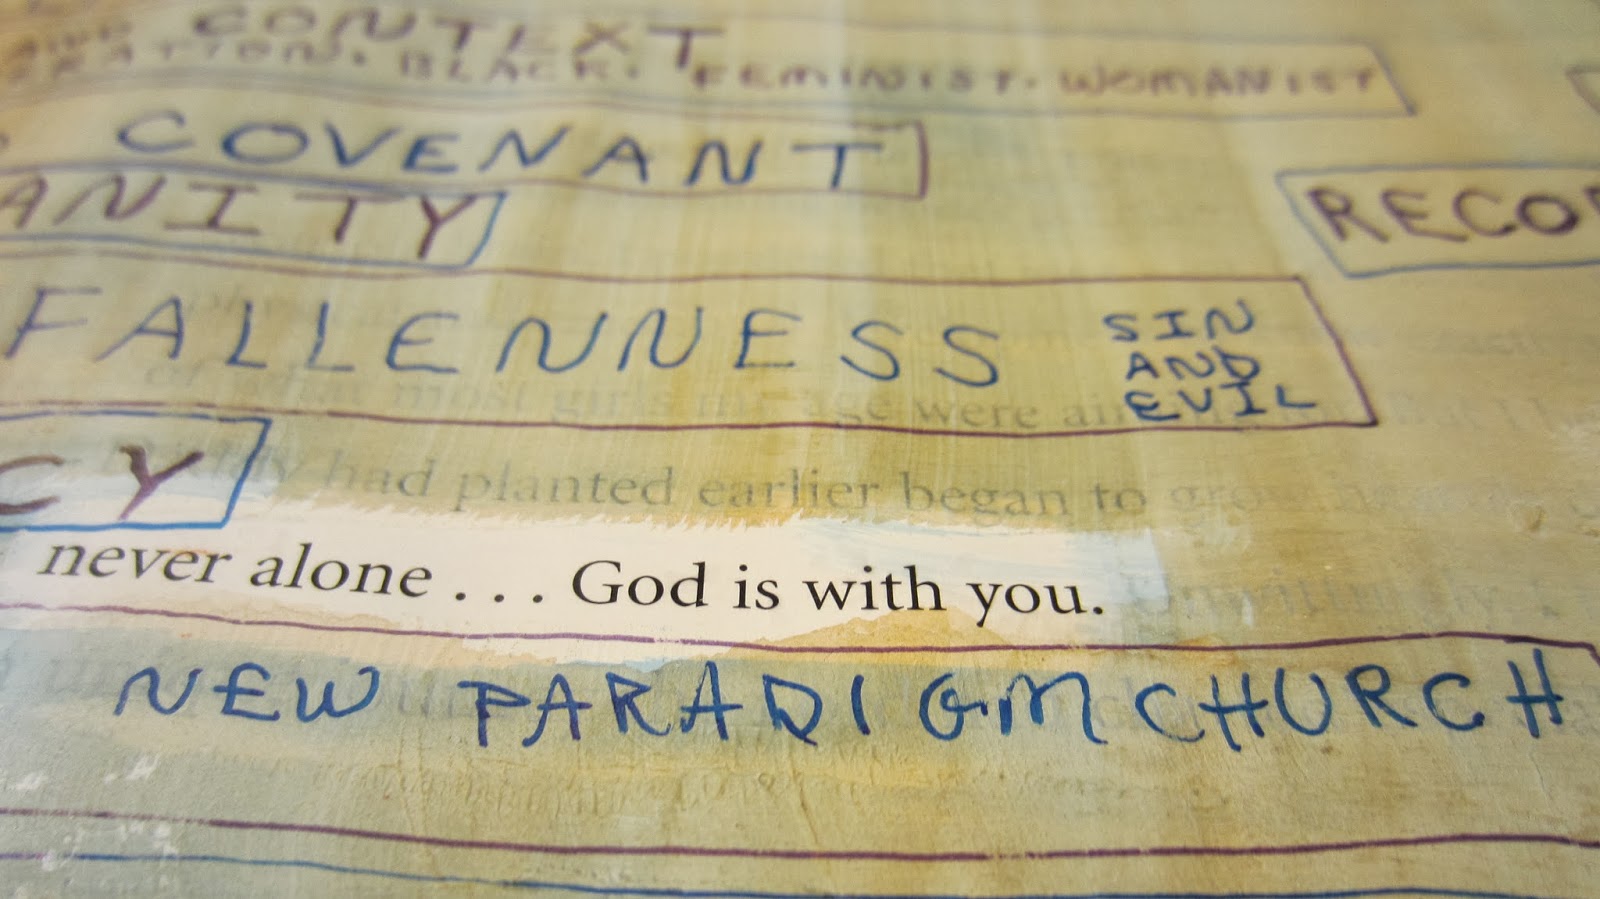 CONTEXT
BLACK. FEMINIST. WOMANIST
COVENANT
ANITY
RECO
FALLENNESS SIN
AND
EVIL
most girls my age were
had planted earlier began to
CY
never alone . . . God is with you.
NEW PARADIGM CHURCH